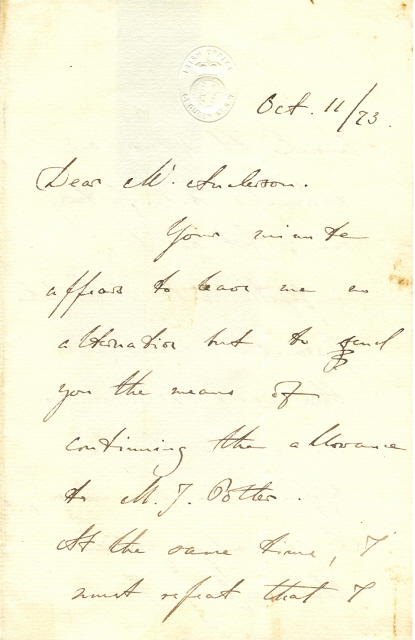 IRISH OFFICE
QUEEN ST. S.W.
Oct. 11/73.
Dear Mr. Anderson.
Your minute
appears to leave me no
alternative but to send
you the means of
continuing the allowance
to M. J. Potter.
At the same time, I
must repeat that I